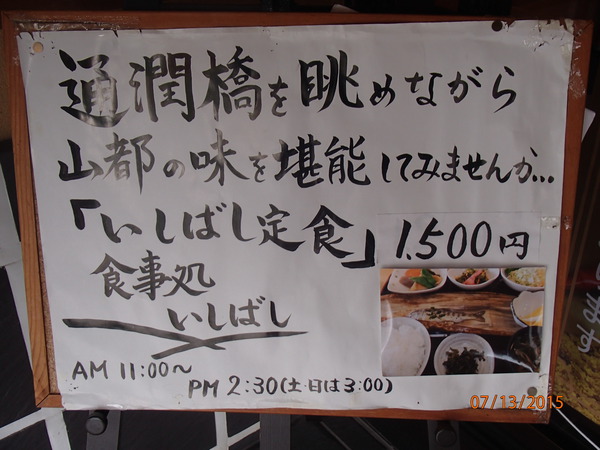 通潤橋を眺めながら
山都の味を堪能してみませんか...
「いしばし定食」 1.500円
食事処
いしばし
AM 11:00～
PM 2:30(土・日は3:00)
07/13/2015